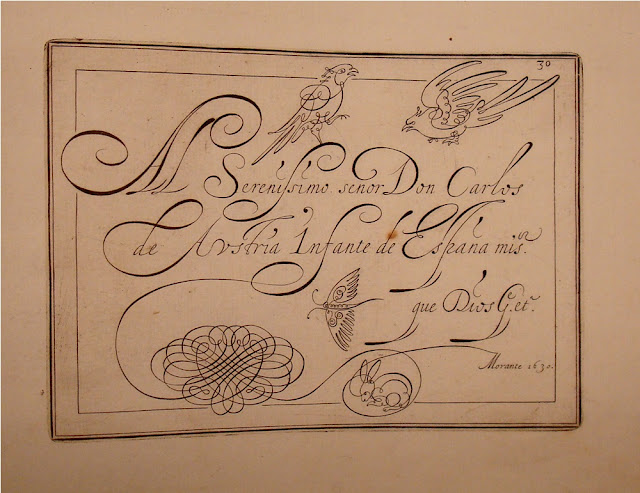 30
Al Serenissimo señor Don Carlos
de Avstria Infante de España mis.r
que Dios G. et.ª
Morante 1630.